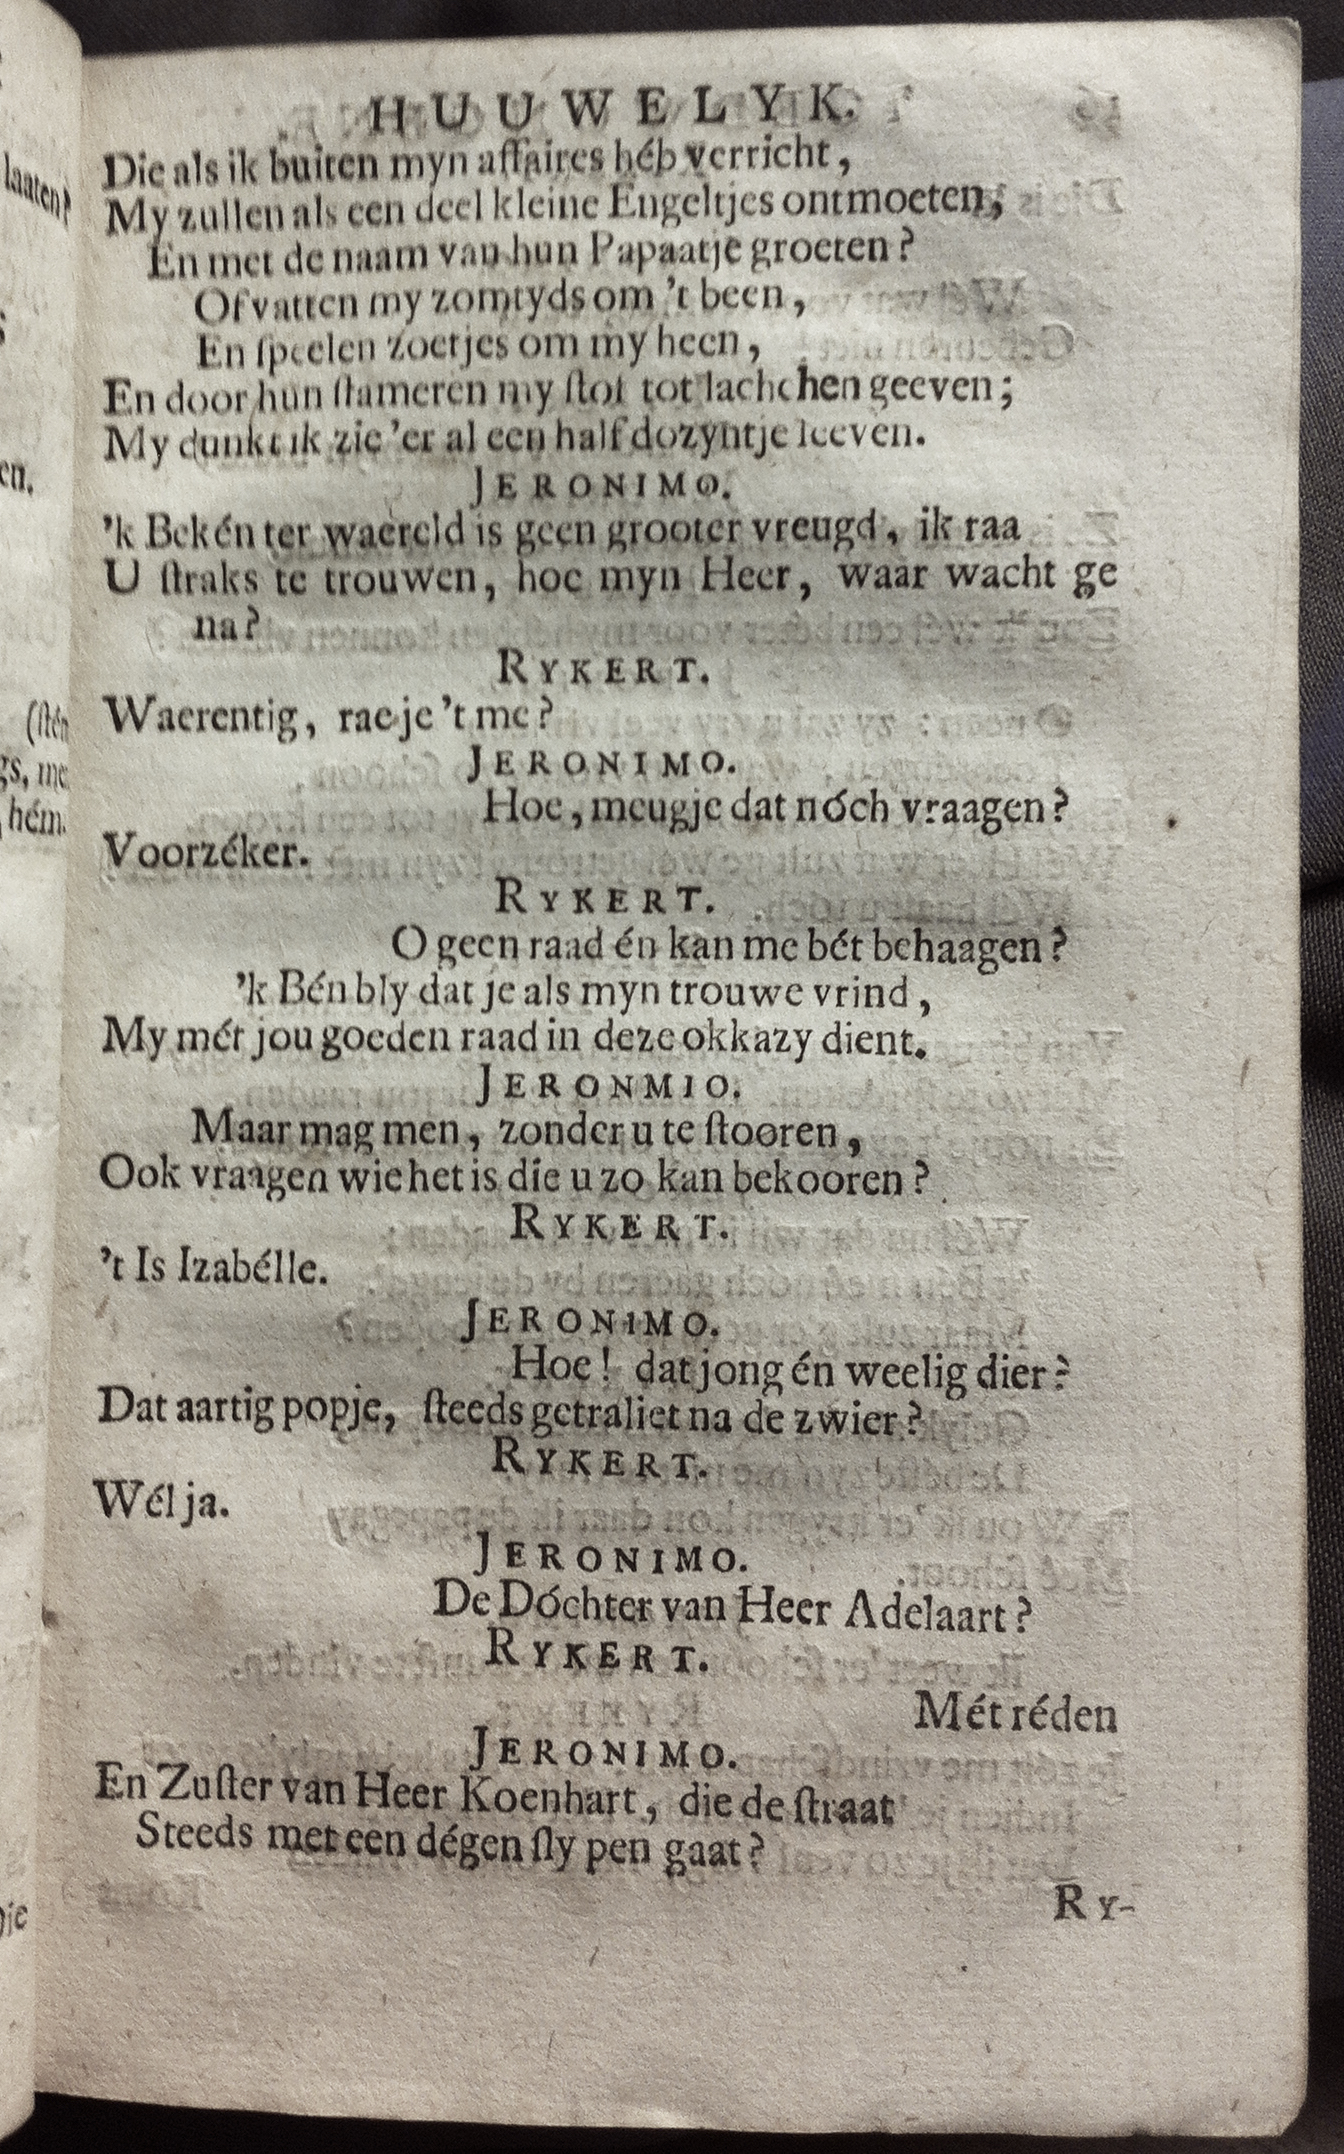 HUUWELYK.
Die als ik buiten myn affaires héb verricht,
My zullen als een deel kleine Engeltjes ontmoeten,
En met de naam van hun Papaatje groeten?
Of vatten my zomtyds om 't been,
En ſpeelen zoetjes om my heen,
En door hun ſtameren my ſtof tot lachchen geeven;
My dunkt ik zie 'er al een half dozyntje leeven.
JERONIMO.
'k Bekén ter waereld is geen grooter vreugd, ik raa
U ſtraks te trouwen, hoe myn Heer, waar wacht ge
na?
RYKERT.
Waerentig, rae je 't me?
JERONIMO.
Hoe, meugje dat nóch vraagen?
Voorzéker.
RYKERT.
O geen raad én kan me bét behaagen?
'k Bén bly dat je als myn trouwe vrind,
My mét jou goeden raad in deze okkazy dient.
JERONMIO.
Maar mag men, zonder u te ſtooren,
Ook vraagen wie het is die u zo kan bekooren?
RYKERT.
't Is Izabélle.
JERONIMO.
Hoe! dat jong én weelig dier?
Dat aartig popje, ſteeds getraliet na de zwier?
RYKERT.
Wél ja.
JERONIMO.
De Dóchter van Heer Adelaart?
RYKERT.
Mét réden
JERONIMO.
En Zuſter van Heer Koenhart, die de ſtraat
Steeds met een dégen ſly pen gaat?
RY-